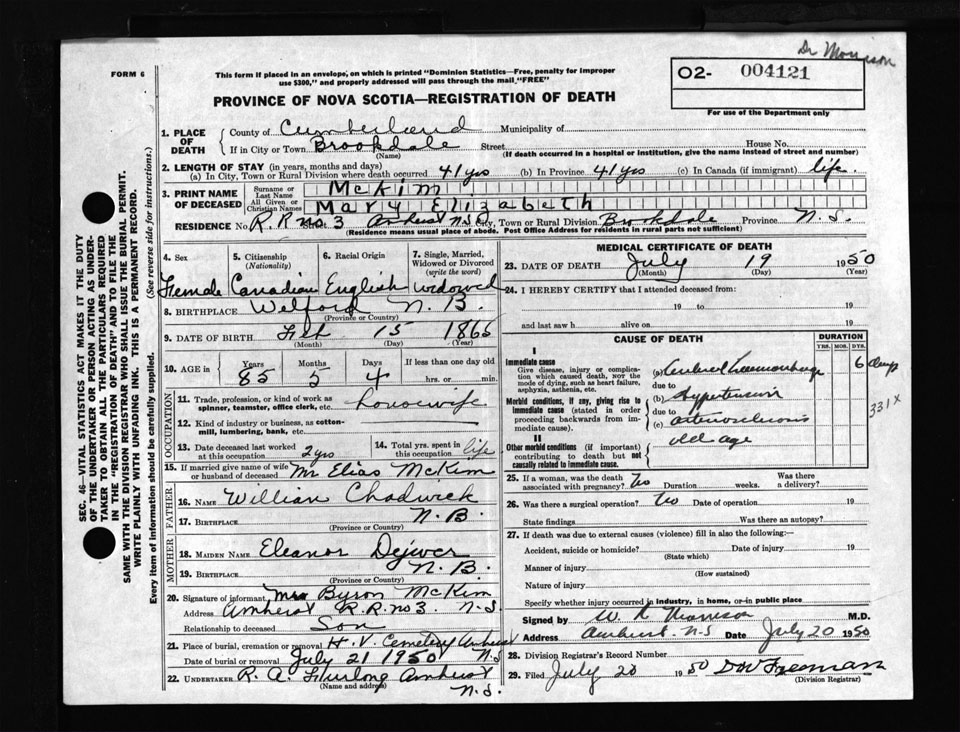 Dr Morrison
FORM 6
This form if placed in an envelope, on which is printed "Dominion Statistics—Free, penalty for improper
use $300," and properly addressed will pass through the mail "FREE"
O2- 004121
For use of the Department only
PROVINCE OF NOVA SCOTIA—REGISTRATION OF DEATH
SEC. 46—VITAL STATISTICS ACT MAKES IT THE DUTY
OF THE UNDERTAKER OR PERSON ACTING AS UNDER-
TAKER TO OBTAIN ALL THE PARTICULARS REQUIRED
IN THE "REGISTRATION OF DEATH" AND TO FILE THE
SAME WITH THE DIVISION REGISTRAR WHO SHALL ISSUE THE BURIAL PERMIT.
WRITE PLAINLY WITH UNFADING INK. THIS IS A PERMANENT RECORD.
Every item of information should be carefully supplied. (See reverse side for instructions.)
1. PLACE OF DEATH { County of Cumberland Municipality of
If in City or Town Brookdale Street House No.
(Name) (If death occurred in a hospital or institution, give the name instead of street and number)
2. LENGTH OF STAY (in years, months and days)
(a) In City, Town or Rural Division where death occurred 41 yrs (b) In Province 41 yrs (c) In Canada (if immigrant) life.
3. PRINT NAME OF DECEASED { Surname or Last Name McKim
All Given or Christian Names Mary Elizabeth
RESIDENCE No. R.R. no. 3 Amherst N.S. City, Town or Rural Division Brookdale Province N.S.
(Residence means usual place of abode. Post Office Address for residents in rural parts not sufficient)
4. Sex 5. Citizenship (Nationality) 6. Racial Origin 7. Single, Married, Widowed or Divorced (write the word)
Female Canadian English widowed
8. BIRTHPLACE Welford N.B.
(Province or Country)
9. DATE OF BIRTH Feb 15 1865
(Month) (Day) (Year)
10. AGE in Years Months Days If less than one day old
85 5 4 hrs. or min.
OCCUPATION
11. Trade, profession, or kind of work as
spinner, teamster, office clerk, etc. housewife
12. Kind of industry or business, as cotton-
mill, lumbering, bank, etc.
13. Date deceased last worked at this occupation 2 yrs 14. Total yrs. spent in this occupation life
15. If married give name of wife
or husband of deceased Mr Elias McKim
FATHER
16. NAME William Chadwick
17. BIRTHPLACE N.B.
(Province or Country)
MOTHER
18. MAIDEN NAME Eleanor
19. BIRTHPLACE N.B.
(Province or Country)
20. Signature of informant Mrs Byron McKim
Address Amherst R.R. no 3. N.S
Relationship to deceased Son
21. Place of burial, cremation or removal H.V. Cemetery Amherst
Date of burial or removal July 21 1950 N.S
22. UNDERTAKER R. A. Furlong Amherst
(Name and address) N.S.
MEDICAL CERTIFICATE OF DEATH
23. DATE OF DEATH July 19 1950
(Month) (Day) (Year)
24. I HEREBY CERTIFY that I attended deceased from:
19 to 19
and last saw h alive on 19
CAUSE OF DEATH DURATION
YRS. MOS. DYS.
I
Immediate cause
Give disease, injury or complica-
tion which caused death, not the
mode of dying, such as heart failure,
asphyxia, asthenia, etc.
(a) Cerebral haemorrhage 6 days
due to
Morbid conditions, if any, giving rise to
immediate cause (stated in order
proceeding backwards from imme-
diate cause).
(b) hypertension
due to
(c) arteriosclerosis
331X
II
Other morbid conditions (if important)
contributing to death but not
causally related to immediate cause.
old age
25. If a woman, was the death
associated with pregnancy? No Duration weeks. Was there
a delivery?
26. Was there a surgical operation? No Date of operation 19
State findings Was there an autopsy?
27. If death was due to external causes (violence) fill in also the following:—
Accident, suicide or homicide? Date of injury 19
(State which)
Manner of injury
(How sustained)
Nature of injury
Specify whether injury occurred in industry, in home, or in public place
Signed by W R Morrison M.D.
Address Amherst. N-S Date July 20 1950
28. Division Registrar's Record Number
29. Filed July 20 1950 DW Freeman
(Division Registrar)